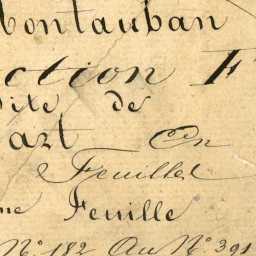 Montauban
ction F
Dite de
art En
2 Feuilles
me Feuille
N.º 182 Au N.º 391